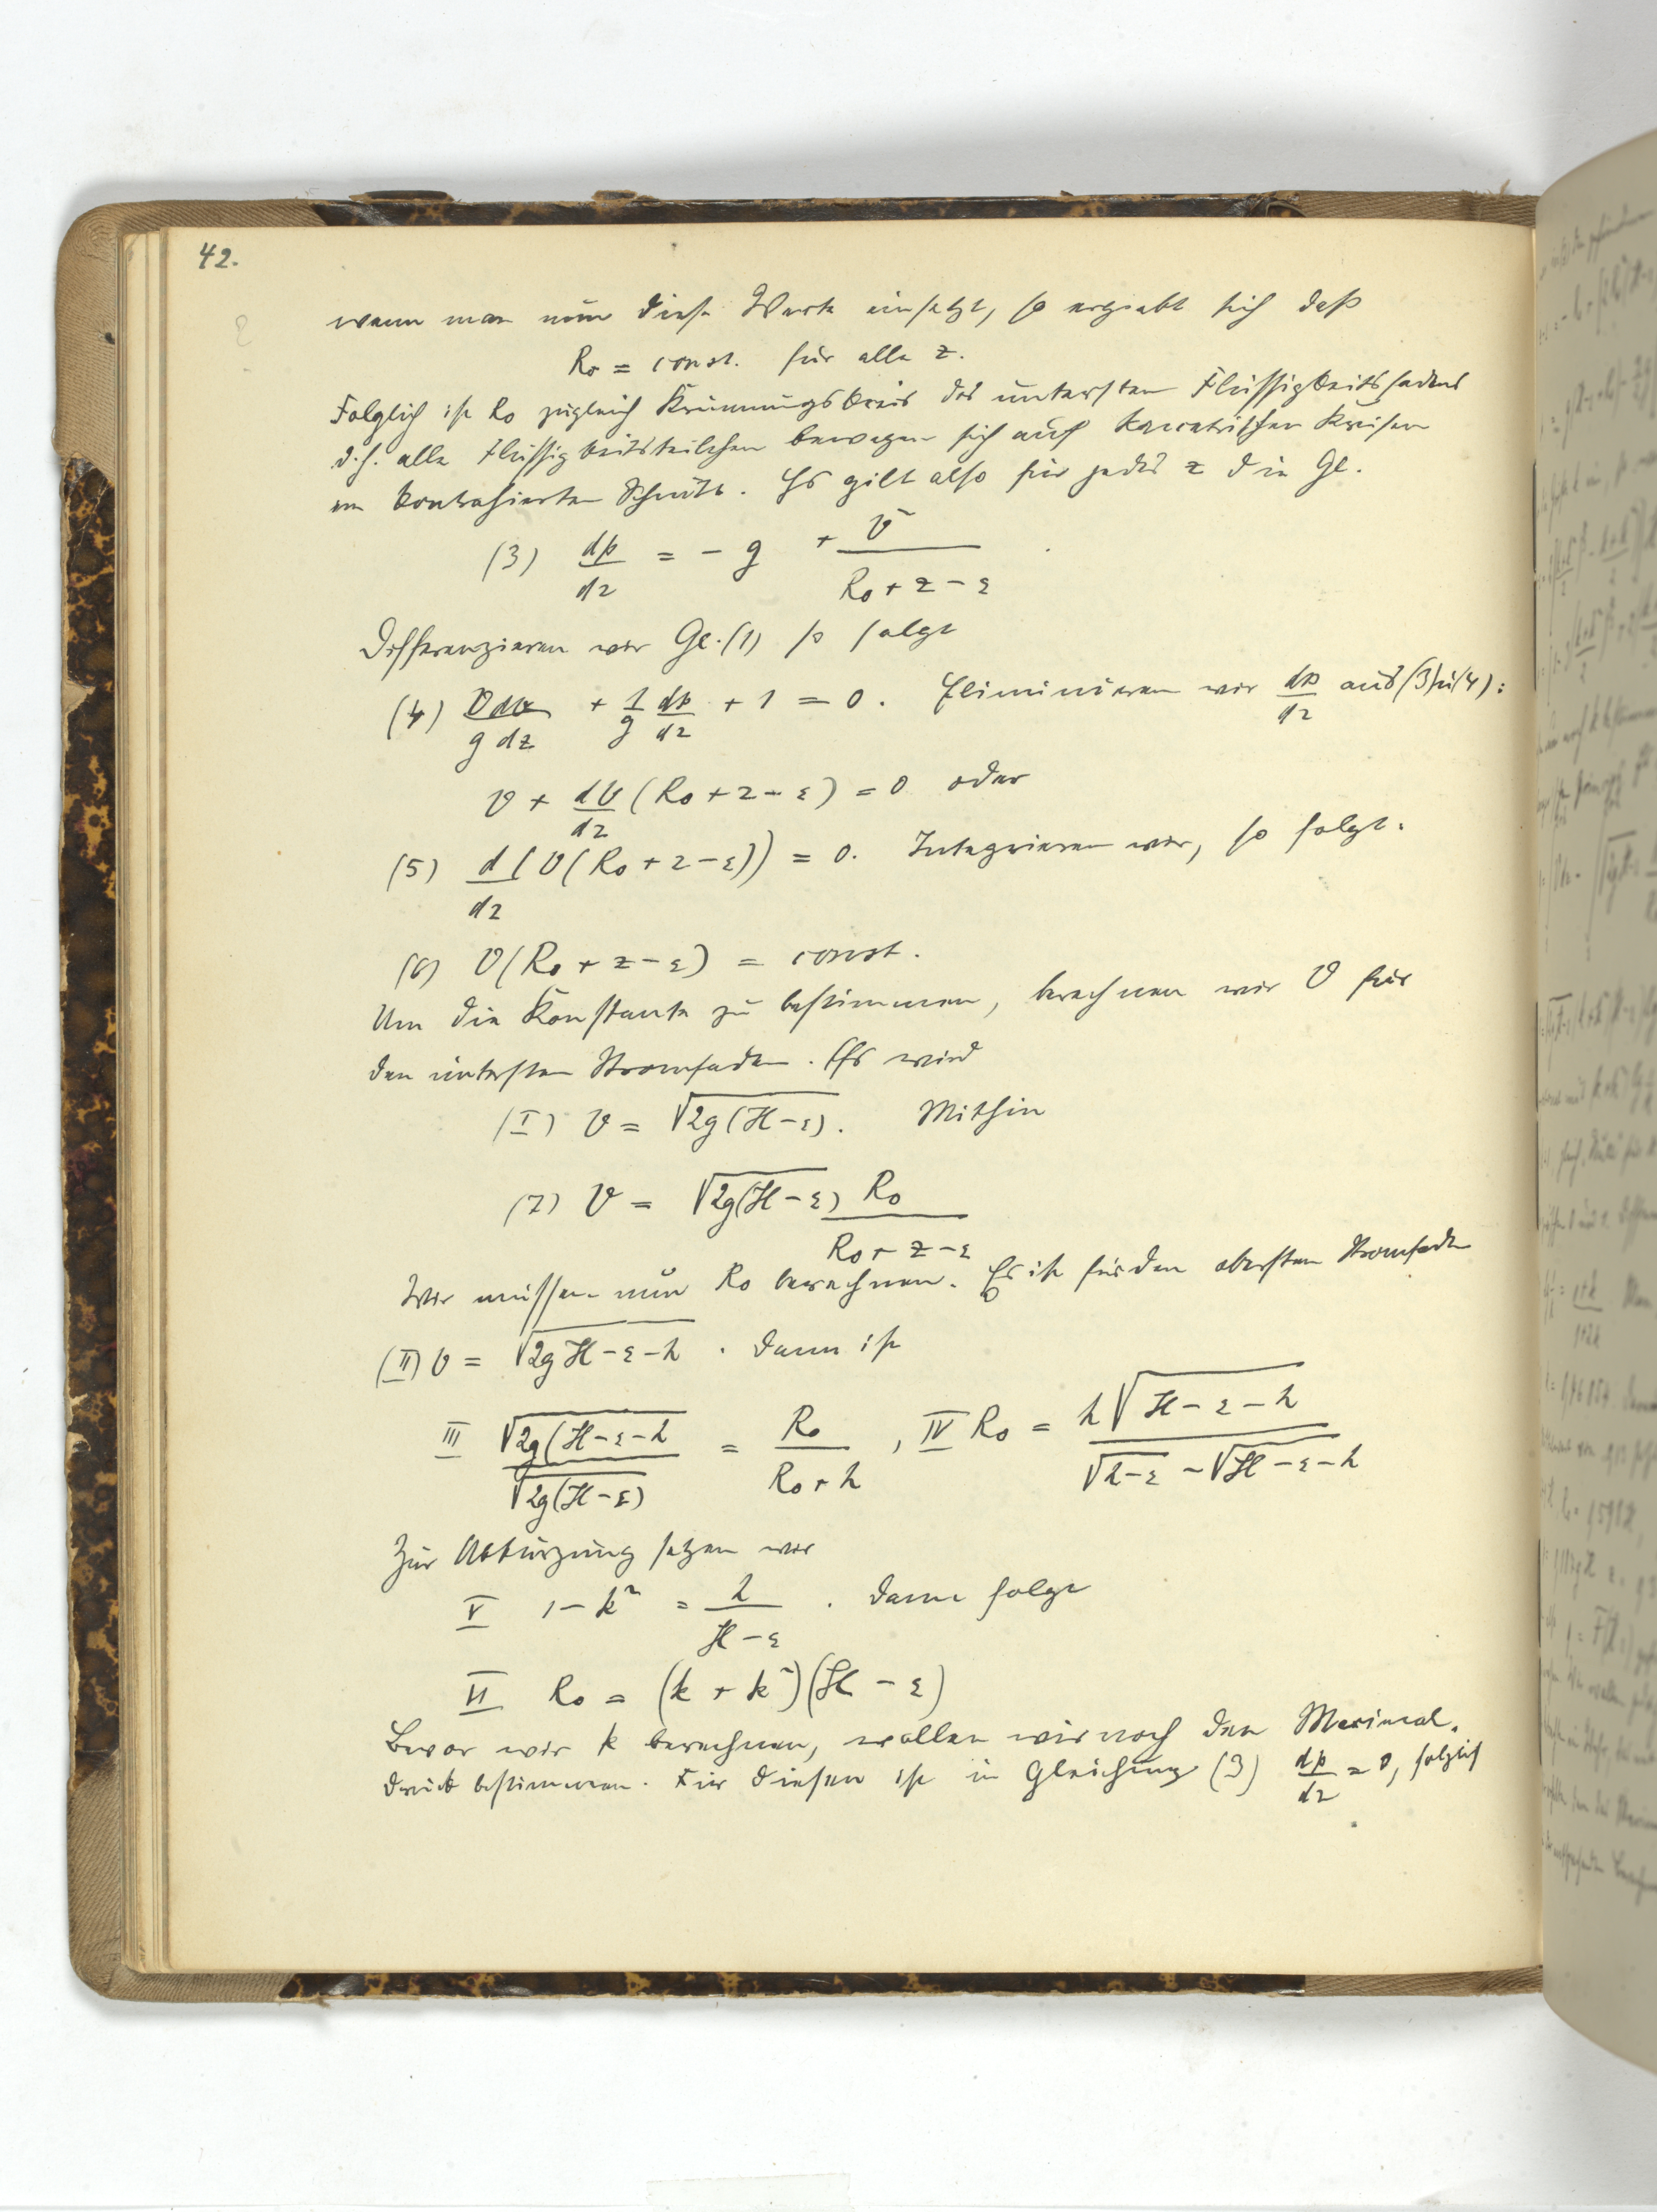 42.
wenn man nun diese Werte einsetzt, so ergiebt sich daß
R₀ = const. für alle z.
Folglich ist R₀ zugleich Krümmungskreis des untersten Flüssigkeitsfadens
d.h. alle Flüssigkeitsteilchen bewegen sich auf konzentrischen Kreisen
im kontrahierten Schnitt. Es gilt also für jedes z die Gl.
(3) dp/dz = - g + v²/(R₀ + z - ε)
Differenzieren wir Gl. (1) so folgt
(4) v dv/(g dz) + 1/g dp/dz + 1 = 0. Eliminieren wir dp/dz aus (3) u (4):
v + dv/dz (R₀ + z - ε) = 0 oder
(5) d/dz (v(R₀ + z - ε)) = 0. Integrieren wir, so folgt.
(6) v(R₀ + z - ε) = const.
Um die Konstante zu bestimmen, berechnen wir v für
den untersten Stromfaden. Es wird
(I) v = √(2g(H - ε)). Mithin
(7) v = √(2g(H - ε)) R₀/(R₀ + z - ε)
Wir müssen nun R₀ berechnen. Es ist für den obersten Stromfaden
(II) v = √(2g H - ε - h). Dann ist
III √(2g(H - ε - h)/√(2g(H - ε)) = R₀/(R₀ + h), IV R₀ = h√(H - ε - h)/(√(h - ε) - √(H - ε - h))
Zur Abkürzung setzen wir
V 1 - k² = h/(H - ε). Dann folgt
VI R₀ = (k + k²)(H - ε)
Bevor wir k berechnen, wollen wir noch den Maximal-
druck bestimmen. Für diesen ist in Gleichung (3) dp/dz = 0, folglich